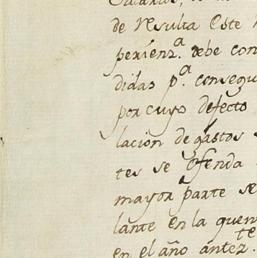 de resulta este
perienz.ª debe con
didas p.ª consegu
por cuyo defecto
lacion de gastos s
tes se ofenda
mayor parte se
lante en la quen
en el año antez.te